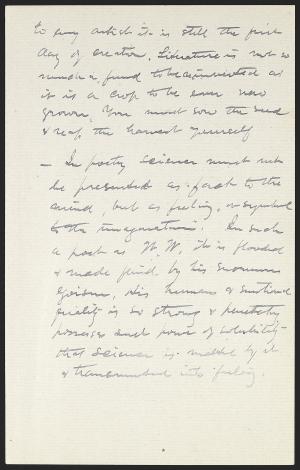 to any artist it is still the first
day of creation. Literature is not so
much a fund to be reinvested as
it is a crop to be ever new
grown. You must sow the seed
& reap the harvest yourself
— In poetry science must not
be presented as fact to the
mind, but as feeling, or symbol
to the imagination. In such
a poet as W. W. it is flooded
& made fluid by his enormous
egoism. His human & emotional
quality is so strong &
possesses such power of solubility
that science is melted by it
& transmuted into feeling.